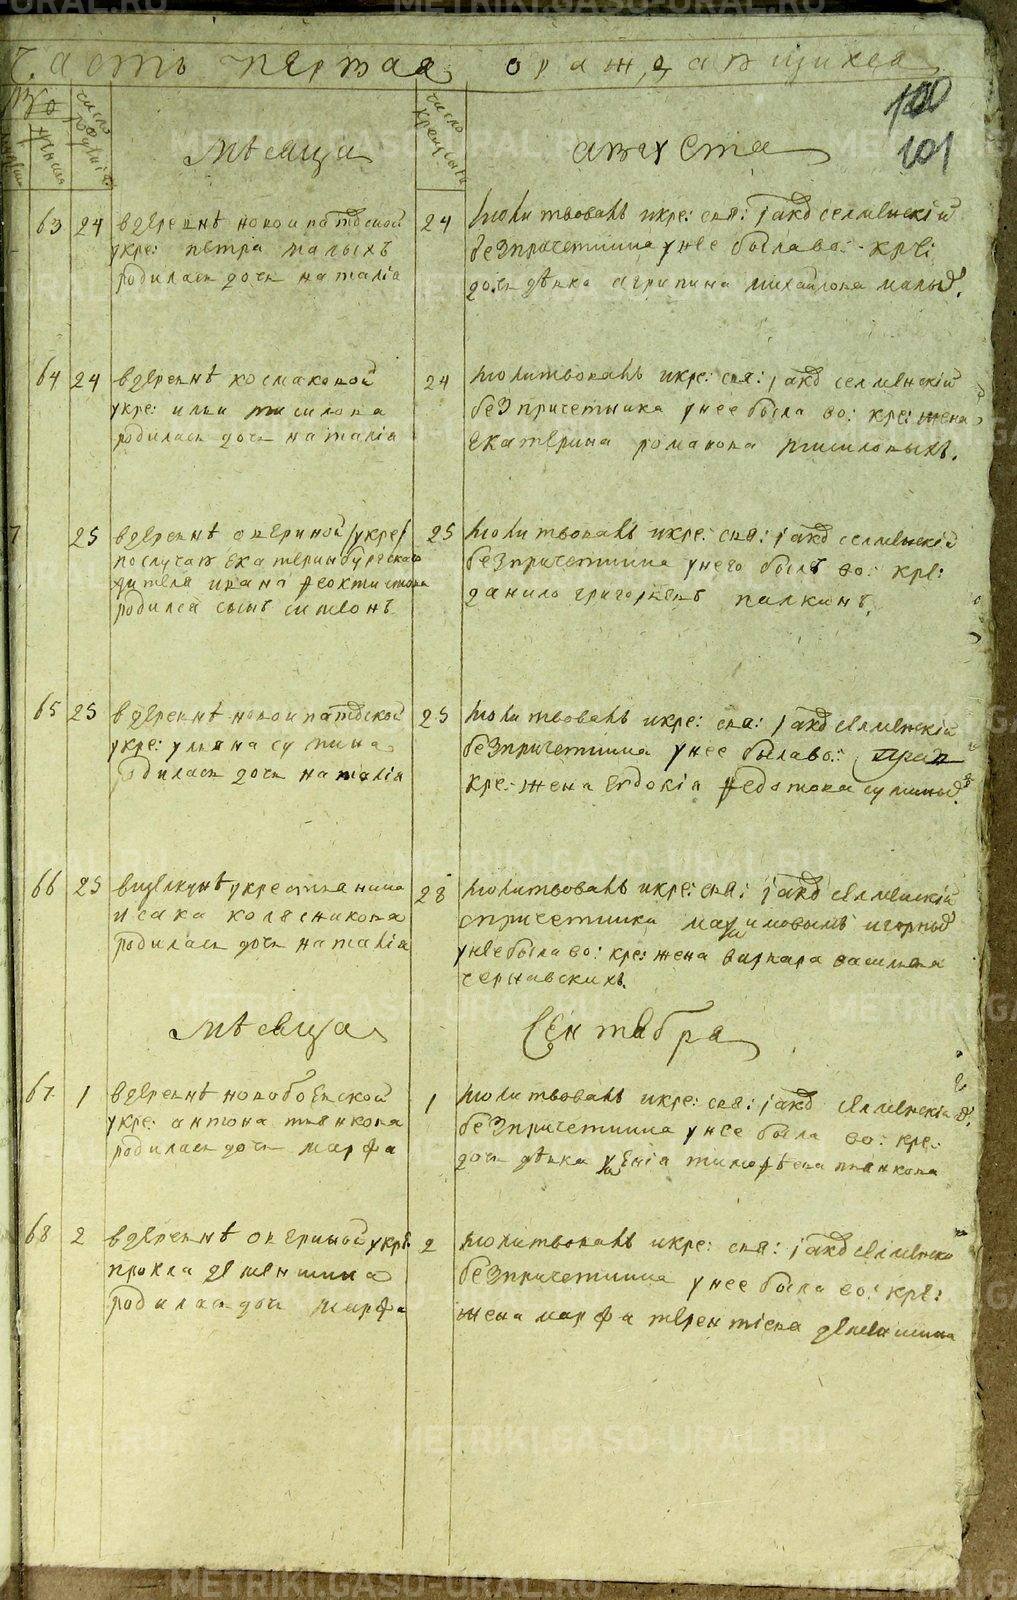 Часть первая о раждающихся
100
101
число родившихся
число крещеныхъ
мѣсяца августа
63 24 в деревнѣ новоипатовской
у кре: петра малыхъ
родилась дочь наталія
24 молитвовалъ и кре: свя: іаковъ селменскій
безпричетника у нее была во: кре:
дочь дѣвка агрипина михайлова малых.
64 24 в деревнѣ космаковой
у кре:
родилась дочь наталія
24 молитвовалъ и кре: свя: іаковъ селменскій
без причетника у нее была во: кре: жена
екатерина романова
7 25 в деревнѣ аверіной /укре/
послучаю екатеринбургскаго
жителя ивана феоктистова
родился сынъ симеонъ
25 молитвовалъ и кре: свя: іаковъ селменскій
безпричетника у него былъ во: кре:
данило григорьевъ палкинъ.
65 25 в деревнѣ новоипатовской
у кре: ульяна сулина
родилась дочь наталія
25 молитвовалъ и кре: свя: іаковъ селменскій
безпричетника у нее была во:
кре: жена евдокія федотова сулиных.
66 25 у крестьянина
исака колясникова
родилась дочь наталія
28 молитвовалъ и кре: свя: іаковъ селменскій
с причетника максимовымъ
у нее была во: кре: жена варвара васильева
чернавскихъ.
мѣсяца Сентября
67 1 в деревнѣ новобоевской
у кре: антона пьянкова
родилась дочь марфа
1 молитвовалъ и кре: свя: іаковъ селменскій
безпричетника у нее была во: кре:
дочь дѣвка ксенія тимофѣева пьянкова
68 2 в деревнѣ аверіной у кре:
прокла деменшина
родилась дочь марфа
2 молитвовалъ и кре: свя: іаковъ селменски
безпричетника у нее была во: кре:
жена марфа терентіева деменшина
METRIKI.GASO-URAL.RU